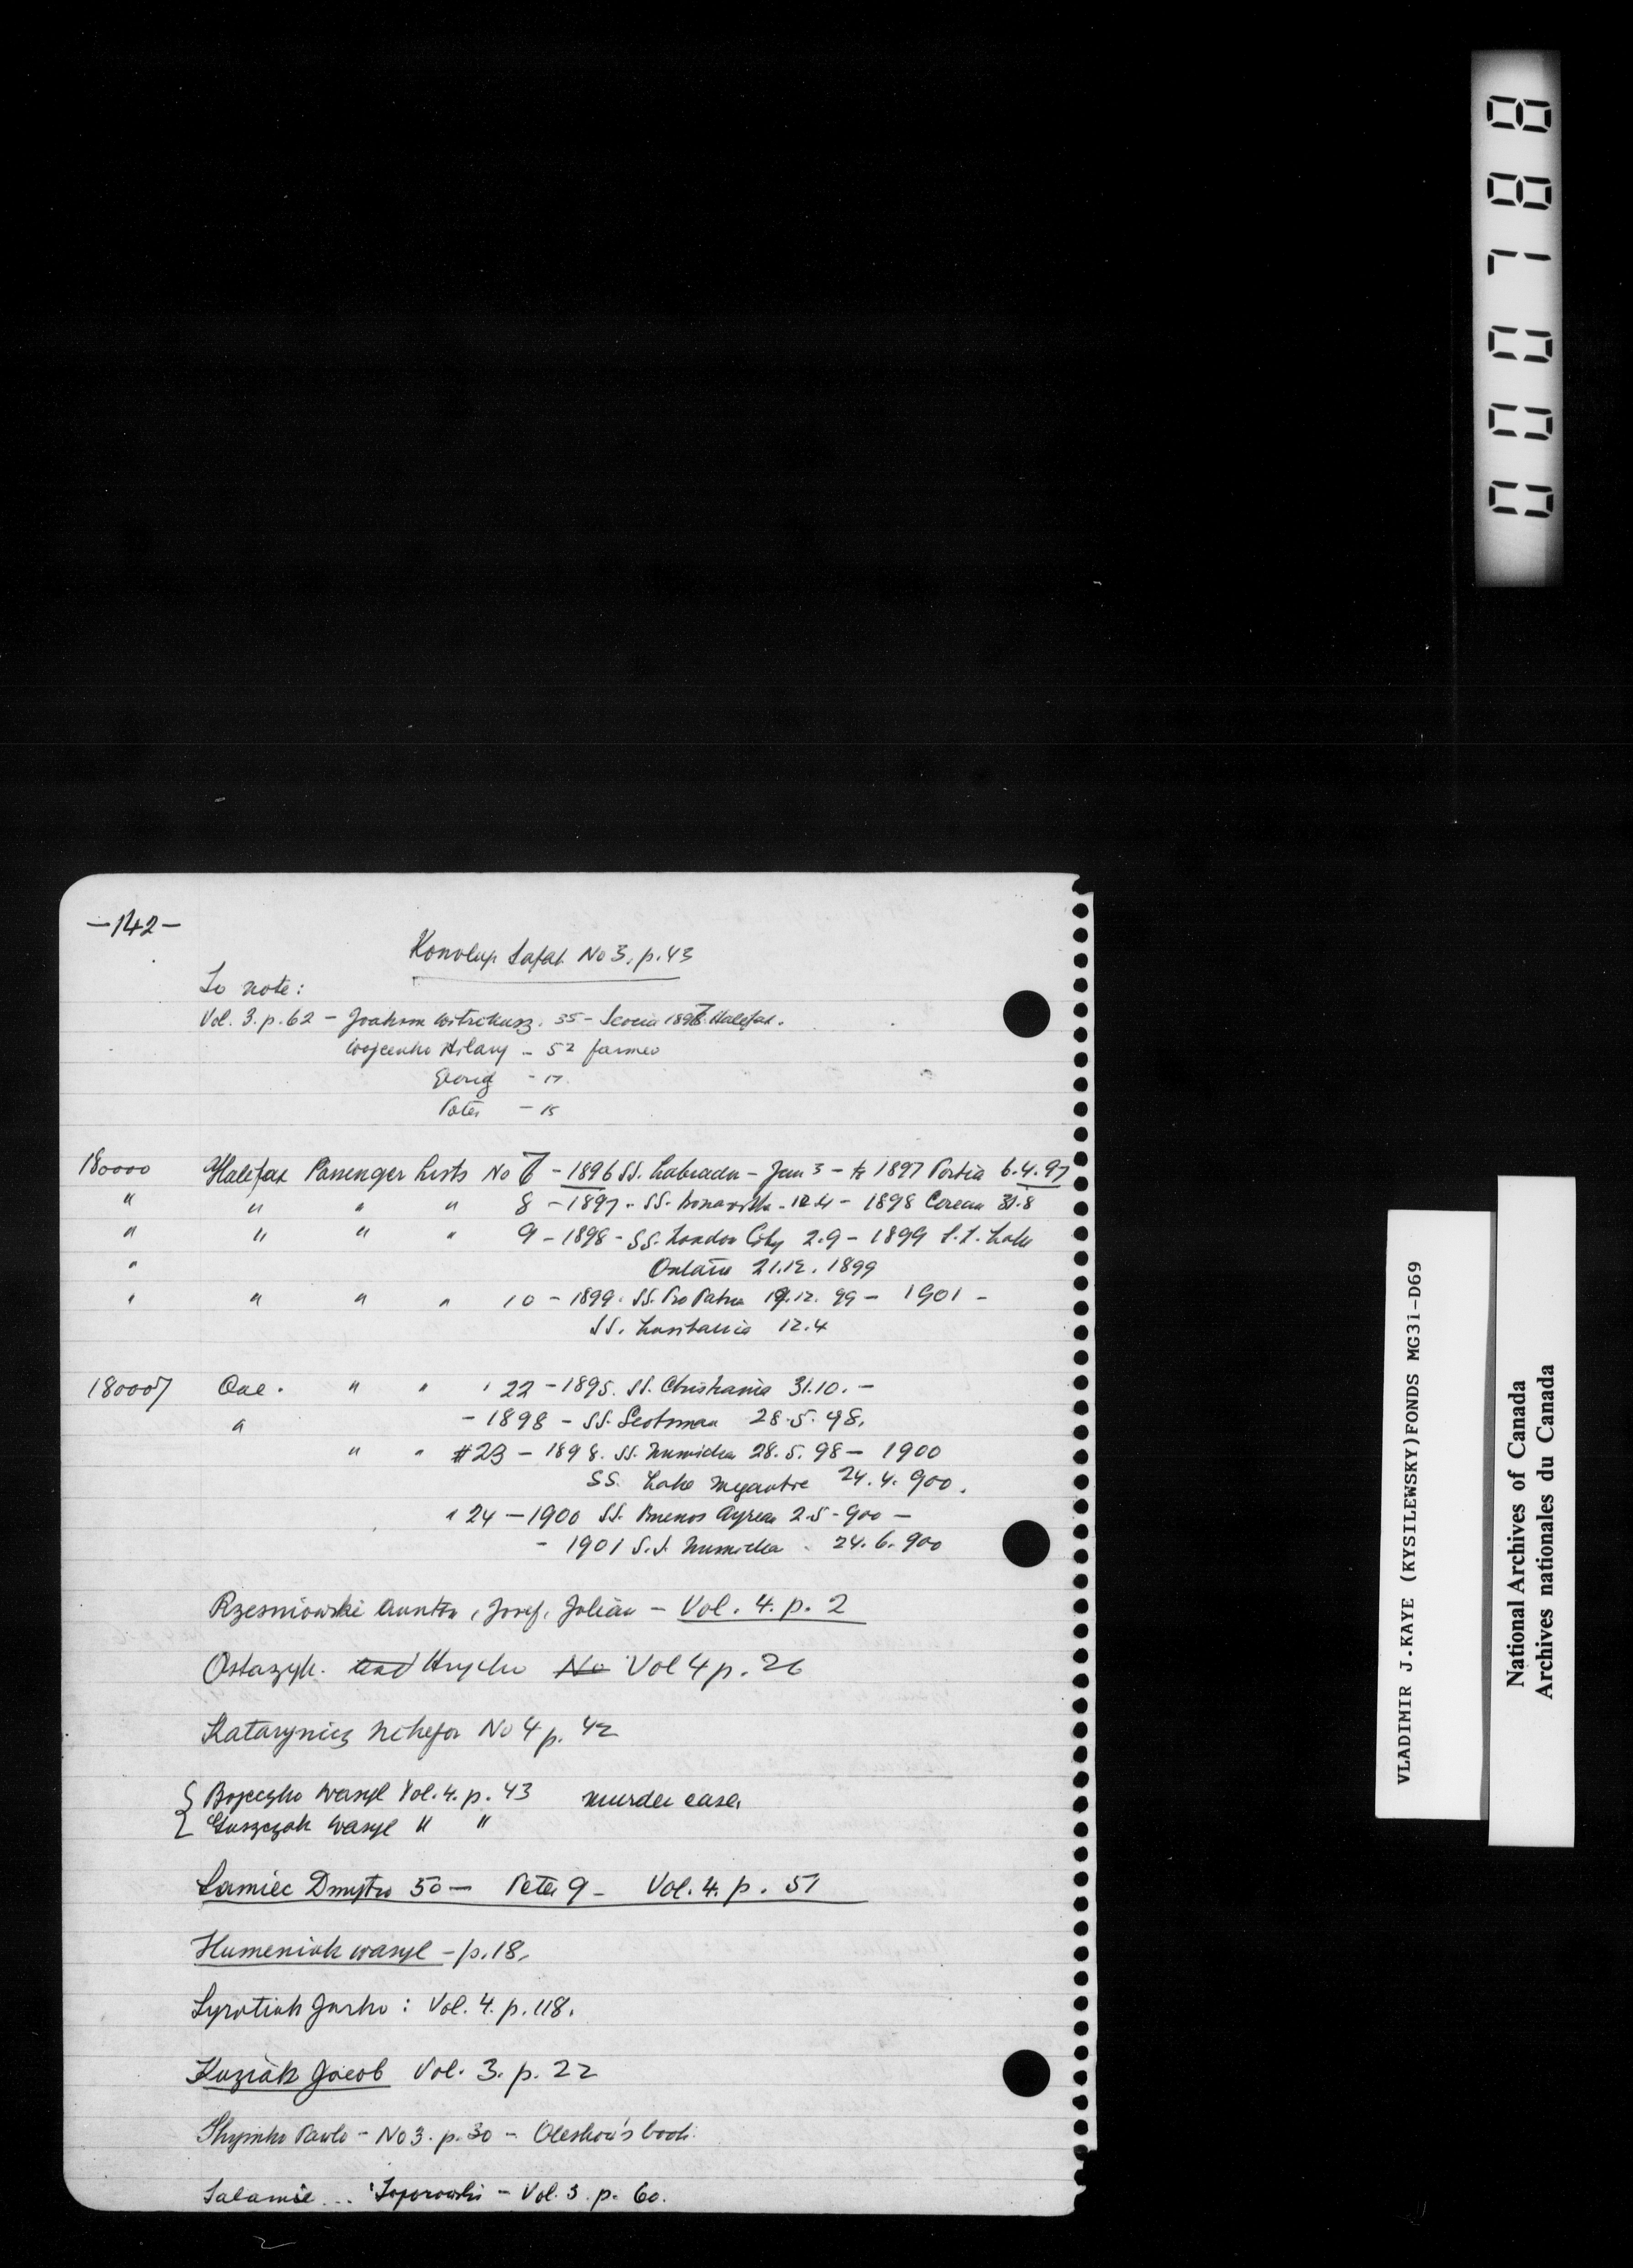 -142-
Konolup Safat No 3, p. 43
To note:
Vol. 3. p. 62 - Joakom Witrikusz. 35 - Scocia 1897. Halifax.
Wojcenko Hilary - 52 farmer
Georg - 17.
Peter - 15
180000 Halifax Passenger Lists No 7 - 1896 SS. Labrador - Jan 3 - to 1897 Portia 6.4.97
" " " " 8 - 1897 - SS. Bonavista - 12.4 - 1898 Corean 31.8
" " " " 9 - 1898 - SS. London City 2.9 - 1899 S.S. Lake
" Ontario 21.12.1899
" " " " 10 - 1899. SS. Pro Patria 19.12.99 - 1901 -
SS. Lusitania 12.4
180007 Que. " " " 22 - 1895. SS. Christiania 31.10. -
" - 1898 - SS. Scotsman 28.5.98.
" " #23 - 1898. SS. Numidia 28.5.98 - 1900
SS. Lake Megantic 24.4.900.
" 24 - 1900 SS. Buenos Ayrea 2.5-900 -
- 1901 S.S. Numidia 24.6.900
Rzesniowski Aunton, Josef, Julian - Vol. 4. p. 2
Ostazyk. and Hryciw No Vol 4 p. 26
Katarynicz Nikefor No 4 p. 42
Bojeczko Wasyl Vol. 4. p. 43 murder case.
Guszczak Wasyl " "
Samiec Dmytro 50 - Peter 9 - Vol. 4. p. 51
Humeniuk Wasyl - p. 18.
Syrotiuk Jurko : Vol. 4. p. 118.
Kuziak Jacob Vol. 3. p. 22
Shymko Pawlo - No 3. p. 30 - Oleskow's book.
Salamie... Toporowski - Vol. 3. p. 60.
000788
VLADIMIR J.KAYE (KYSILEWSKY)FONDS MG31-D69
National Archives of Canada
Archives nationales du Canada